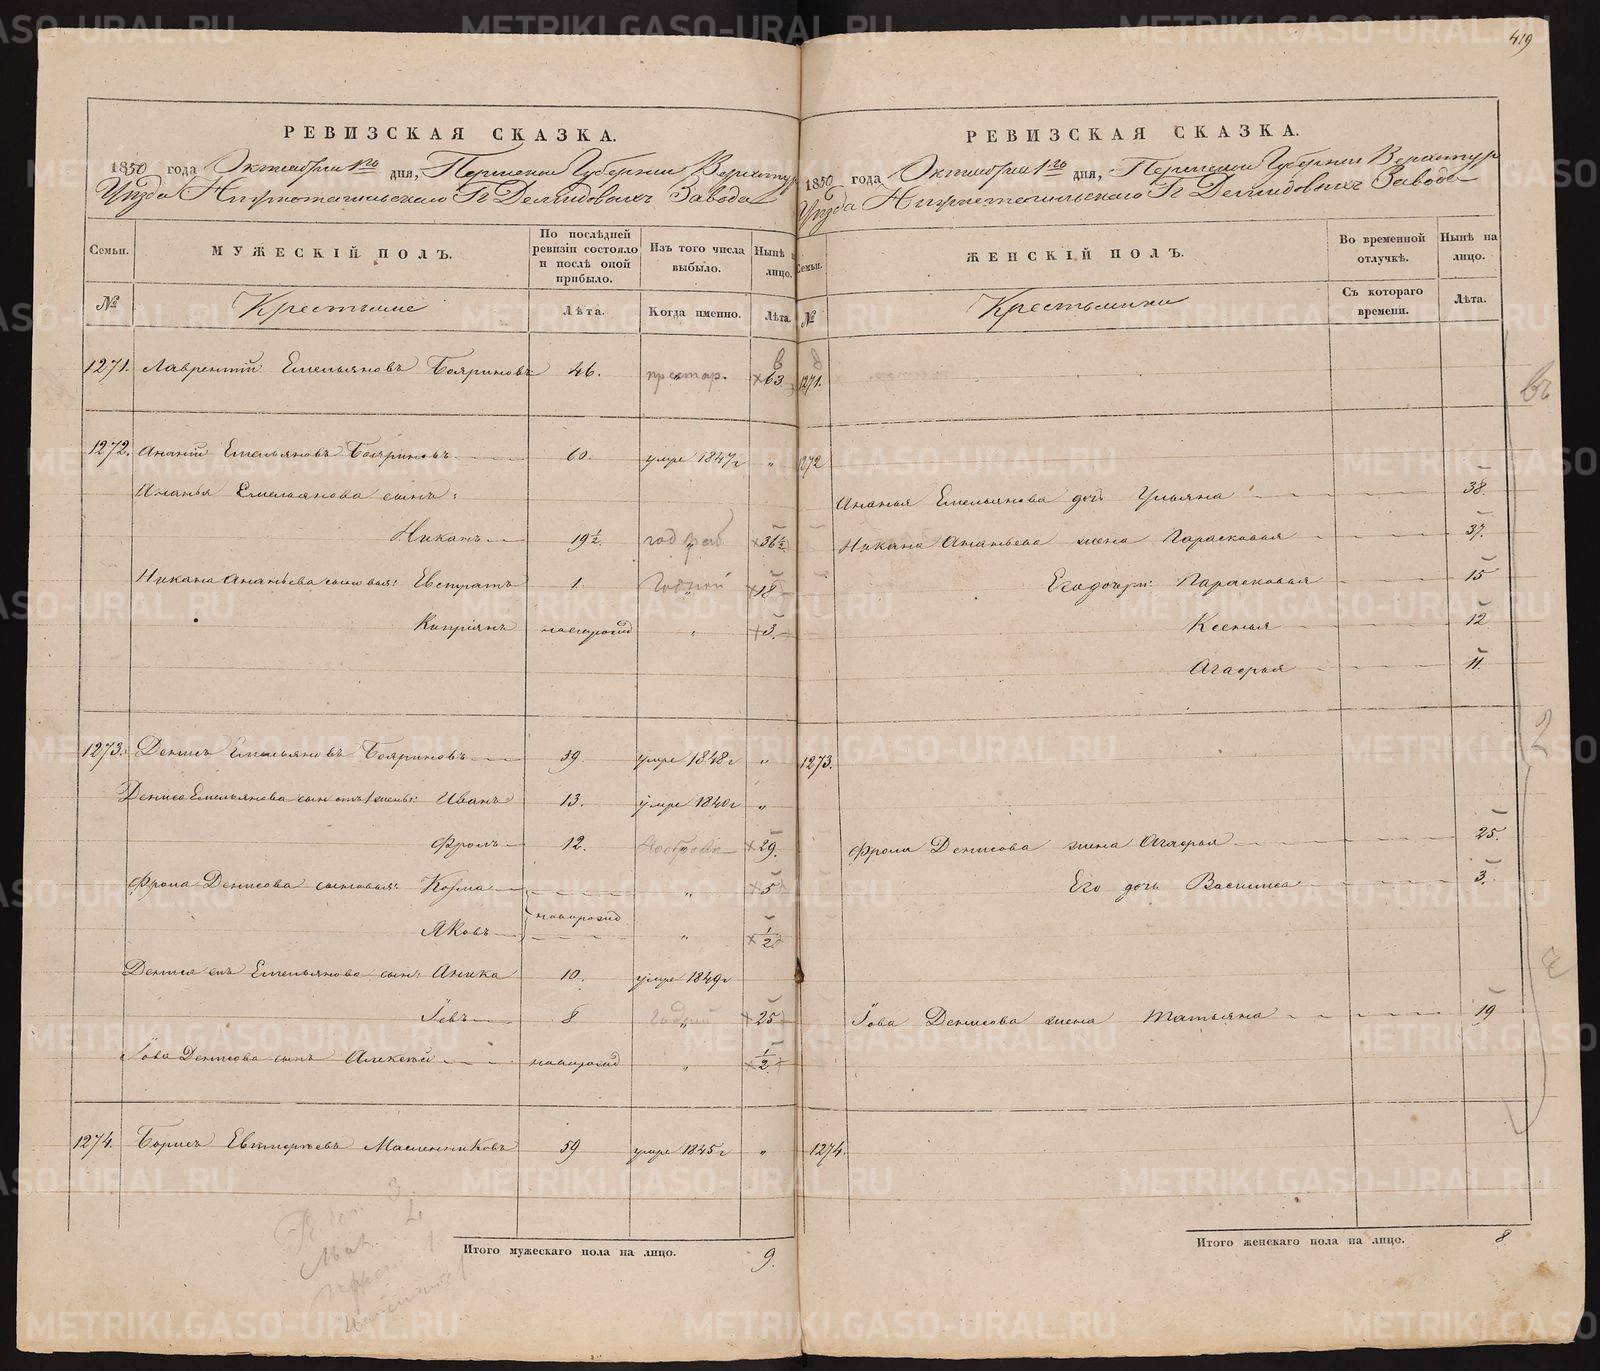 419
РЕВИЗСКАЯ СКАЗКА.
1850 года Октября 1го дня, Пермской Губернии Верхотур
Уѣзда Нижнотагильскаго Гг Демидовыхъ Завода
Семьи. МУЖЕСКІЙ ПОЛЪ. По послѣдней ревизіи состояло и послѣ оной прибыло. Изъ того числа выбыло. Нынѣ лицо.
№ Крестьяне Лѣта. Когда именно. Лѣта.
1271. Лаврентій Емельяновъ Бояриновъ 46. престар. 63.
1272. Ананій Емельяновъ Бояриновъ 60. умре 1847г "
Ананья Емельянова сынъ:
Никанъ 19½. " 36½
Никана Ананьева сыновья: Евстратъ 1. Годный " 18
Кипріянъ новорожд " 3.
1273. Денисъ Емельяновъ Бояриновъ 39. умре 1848г "
Дениса Емельянова сын отъ 1 жены: Иванъ 13. умре 1840г "
Фролъ 12. 29.
Фрола Денисова сыновья: Козма " 5
новорожд
Яковъ " ½
Дениса Емельянова сынъ Аника 10. умре 1849г
Іевъ 8 годный " 25
Іова Денисова сынъ Алексѣй новорожд " ½
1274. Борисъ Масленниковъ 59 умре 1845г "
Итого мужескаго пола на лицо. 9.
РЕВИЗСКАЯ СКАЗКА.
1850 года Октября 1го дня, Пермской Губернии Верхотур
Уѣзда Нижнетагильскаго Гг Демидовыхъ Завода
Семьи. ЖЕНСКІЙ ПОЛЪ. Во временной отлучкѣ. Нынѣ на лицо.
№ Крестьянки Съ котораго времени. Лѣта.
1271.
1272
Ананья Емельянова дочь Ульяна 38.
Никана Ананьева жена Парасковья 37.
Его дочери: Парасковья 15
Ксенья 12
Агафья 11.
1273.
Фрола Денисова жена Агафья 25.
Его дочь Василиса 3.
Іова Денисова жена Татьяна 19
1274.
Итого женскаго пола на лицо. 8.
METRIKI.GASO-URAL.RU